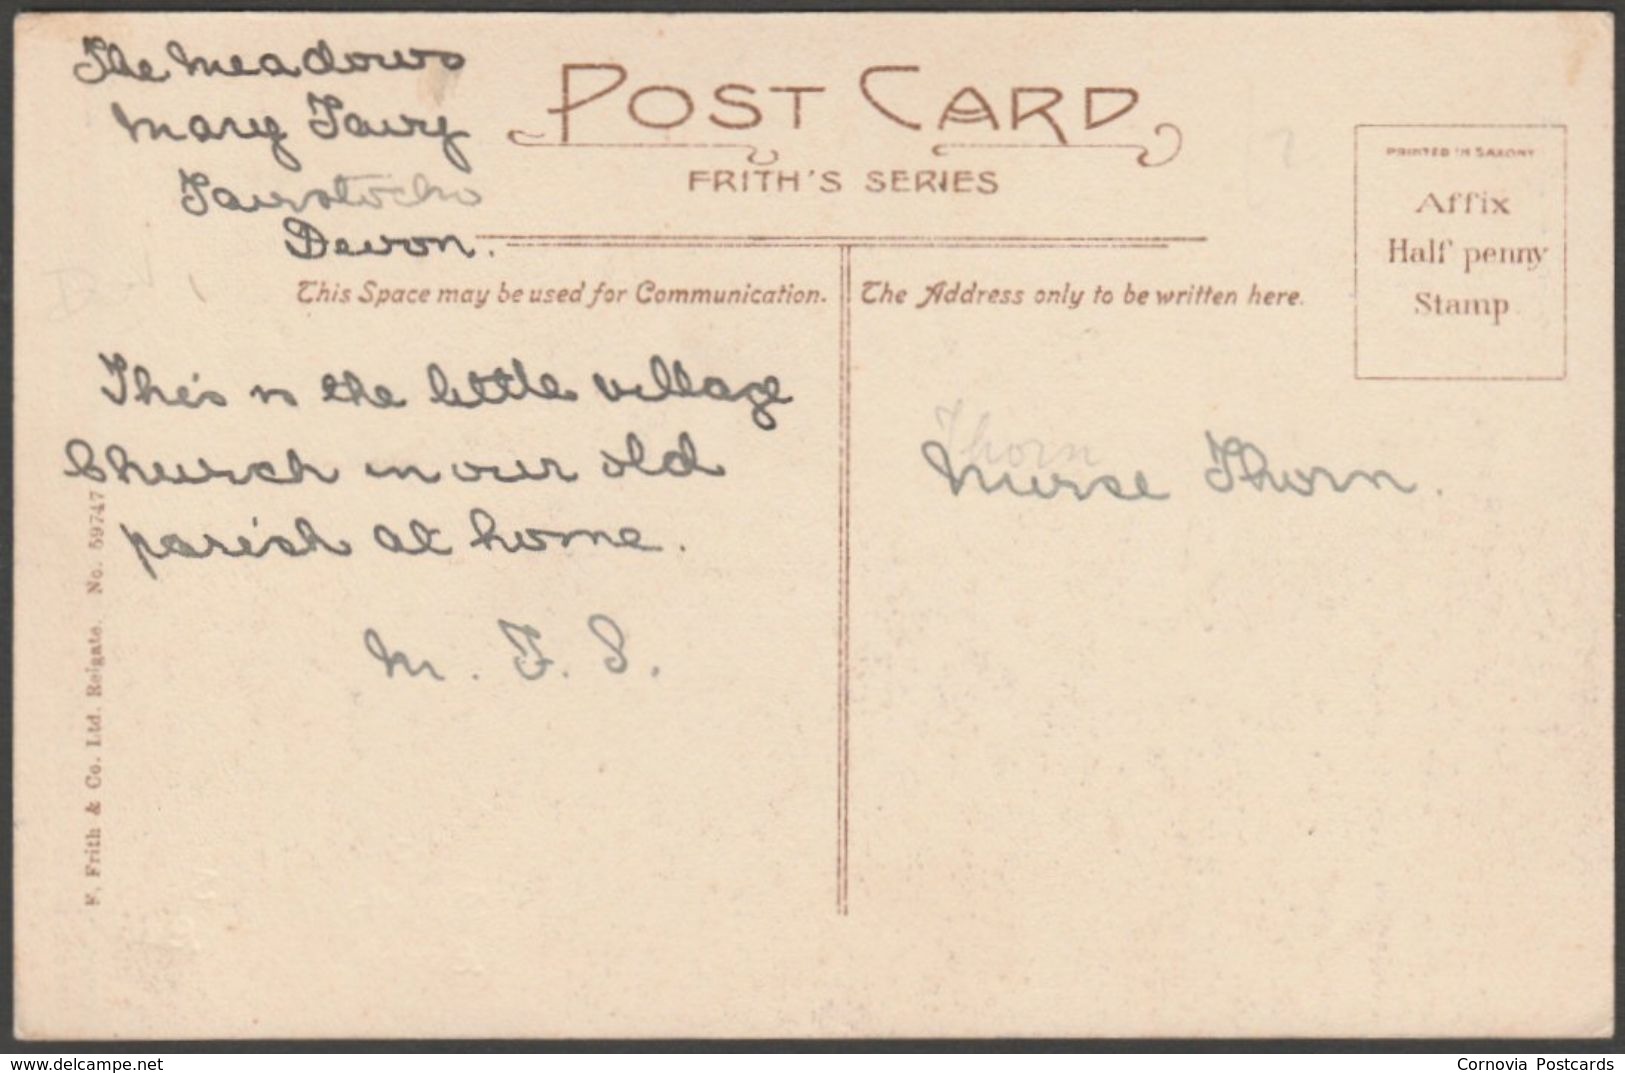 The Meadows
Mary Tavy
Tavistock
Devon.
POST CARD
FRITH'S SERIES
PRINTED IN SAXONY
Affix
Half penny
Stamp
This Space may be used for Communication.
The Address only to be written here.
This is the little village
Church in our old
parish at home.
M. F. S.
Thorn
Nurse Thorn.
F. Frith & Co. Ltd. Reigate. No. 59747
delcampe.net
Cornovia Postcards